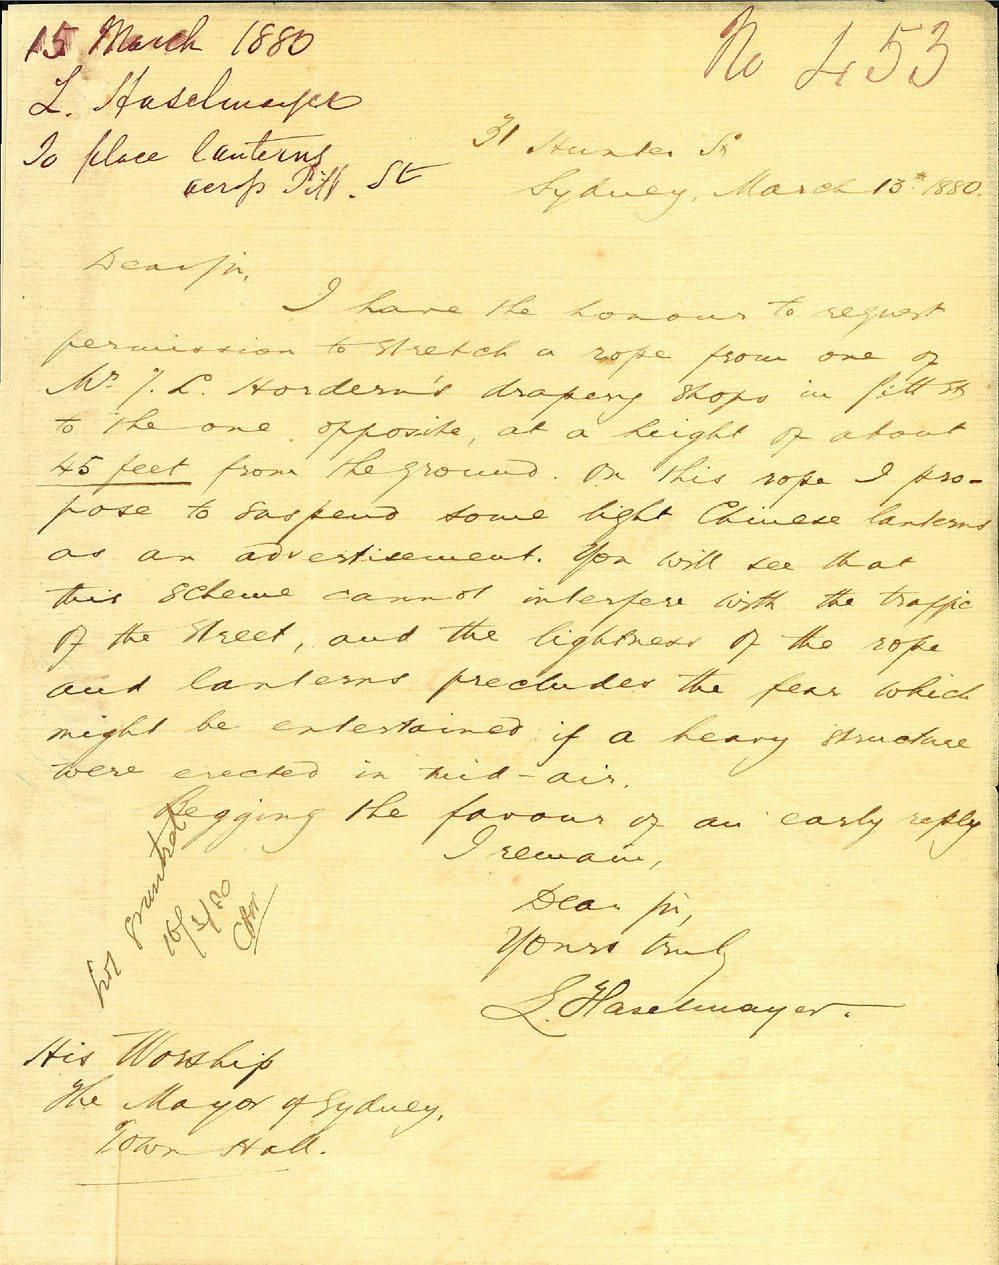 15 March 1880
L. Haselmayer
To place lanterns
across Pitt. St
No 453
31 Hunter St
Sydney, March 13th 1880.
Dear Sir,
I have the honour to request
permission to stretch a rope from one of
Mr. J. L. Hordern's drapery shops in Pitt St
to the one opposite, at a height of about
45 feet from the ground. On this rope I pro-
pose to suspend some light Chinese lanterns
as an advertisement. You will see that
this scheme cannot interfere with the traffic
of the street, and the lightness of the rope
and lanterns precludes the fear which
might be entertained if a heavy structure
were erected in mid-air.
Begging the favour of an early reply
I remain,
Dear Sir,
Yours truly
L. Haselmayer.
Not granted
16/3/80
His Worship
The Mayor of Sydney,
Town Hall.